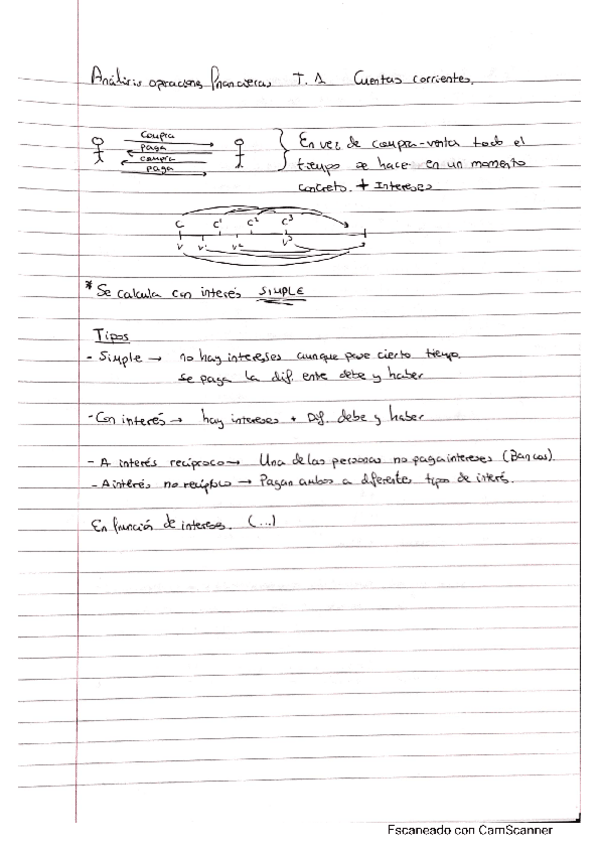 Análisis operaciones financieras T.1 Cuentas corrientes.
compra
paga
compra
paga
En vez de compra-venta todo el
tiempo se hace en un momento
concreto. + Intereses
C C¹ C² C³
V V¹ V² V³
* Se calcula con interés SIMPLE
Tipos
- Simple → no hay intereses aunque pase cierto tiempo.
se paga la dif. entre debe y haber
- Con interés → hay intereses + Dif. debe y haber
- A interés recíproco → Una de las personas no paga intereses (Bancos).
- A interés no recíproco → Pagan ambos a diferentes tipos de interés.
En función de intereses. (...)
Escaneado con CamScanner